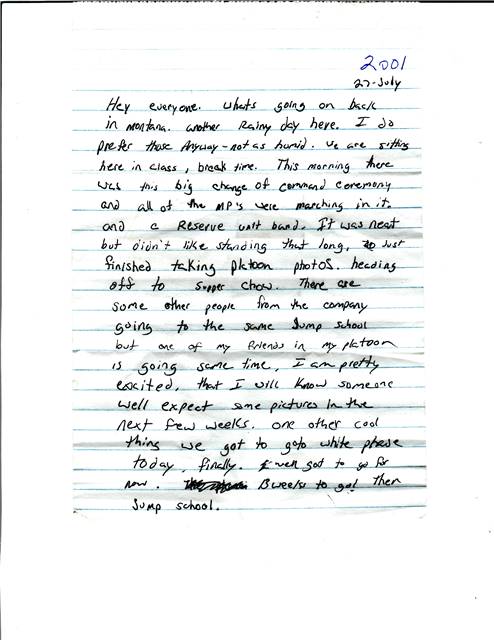 2001
27-July
Hey everyone. whats going on back
in montana. another Rainy day here. I do
prefer those Anyway - not as humid. we are sitting
here in class, break time. This morning there
was this big change of command ceremony
and all of the MP's were marching in it.
and a Reserve unit band. It was neat
but didn't like standing that long, Just
finished taking pktoon photos. heading
off to supper chow. There are
some other people from the company
going to the same Jump school
but one of my friends in my platoon
is going same time, I am pretty
excited, that I will know someone
well expect some pictures In the
next few weeks. one other cool
thing we got to goto white phase
today, finally. well got to go for
now. 3 weeks to go! Then
Jump school.